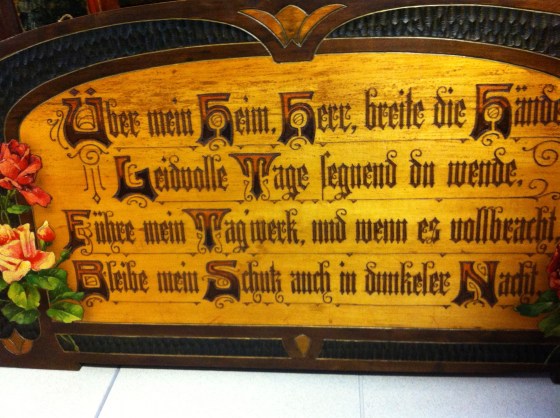 Über mein Heim, Herr, breite die Hände
Leidvolle Tage segnend du wende,
Führe mein Tagwerk, und wenn es vollbracht
Bleibe mein Schutz auch in dunkeler Nacht